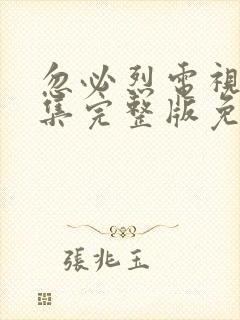 忽必烈電視
集完整版免
張兆玉